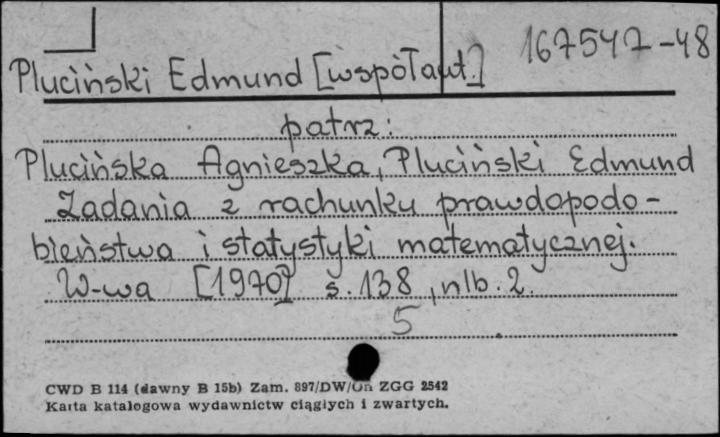 167547-48
Pluciński Edmund [współaut.]
patrz:
Plucińska Agnieszka, Pluciński Edmund
Zadania z rachunku prawdopodo-
bieństwa i statystyki matematycznej.
W-wa [1970] s. 138, nlb. 2.
5
CWD B 114 (dawny B 15b) Zam. 897/DW/Gn ZGG 2542
Karta katalogowa wydawnictw ciągłych i zwartych.